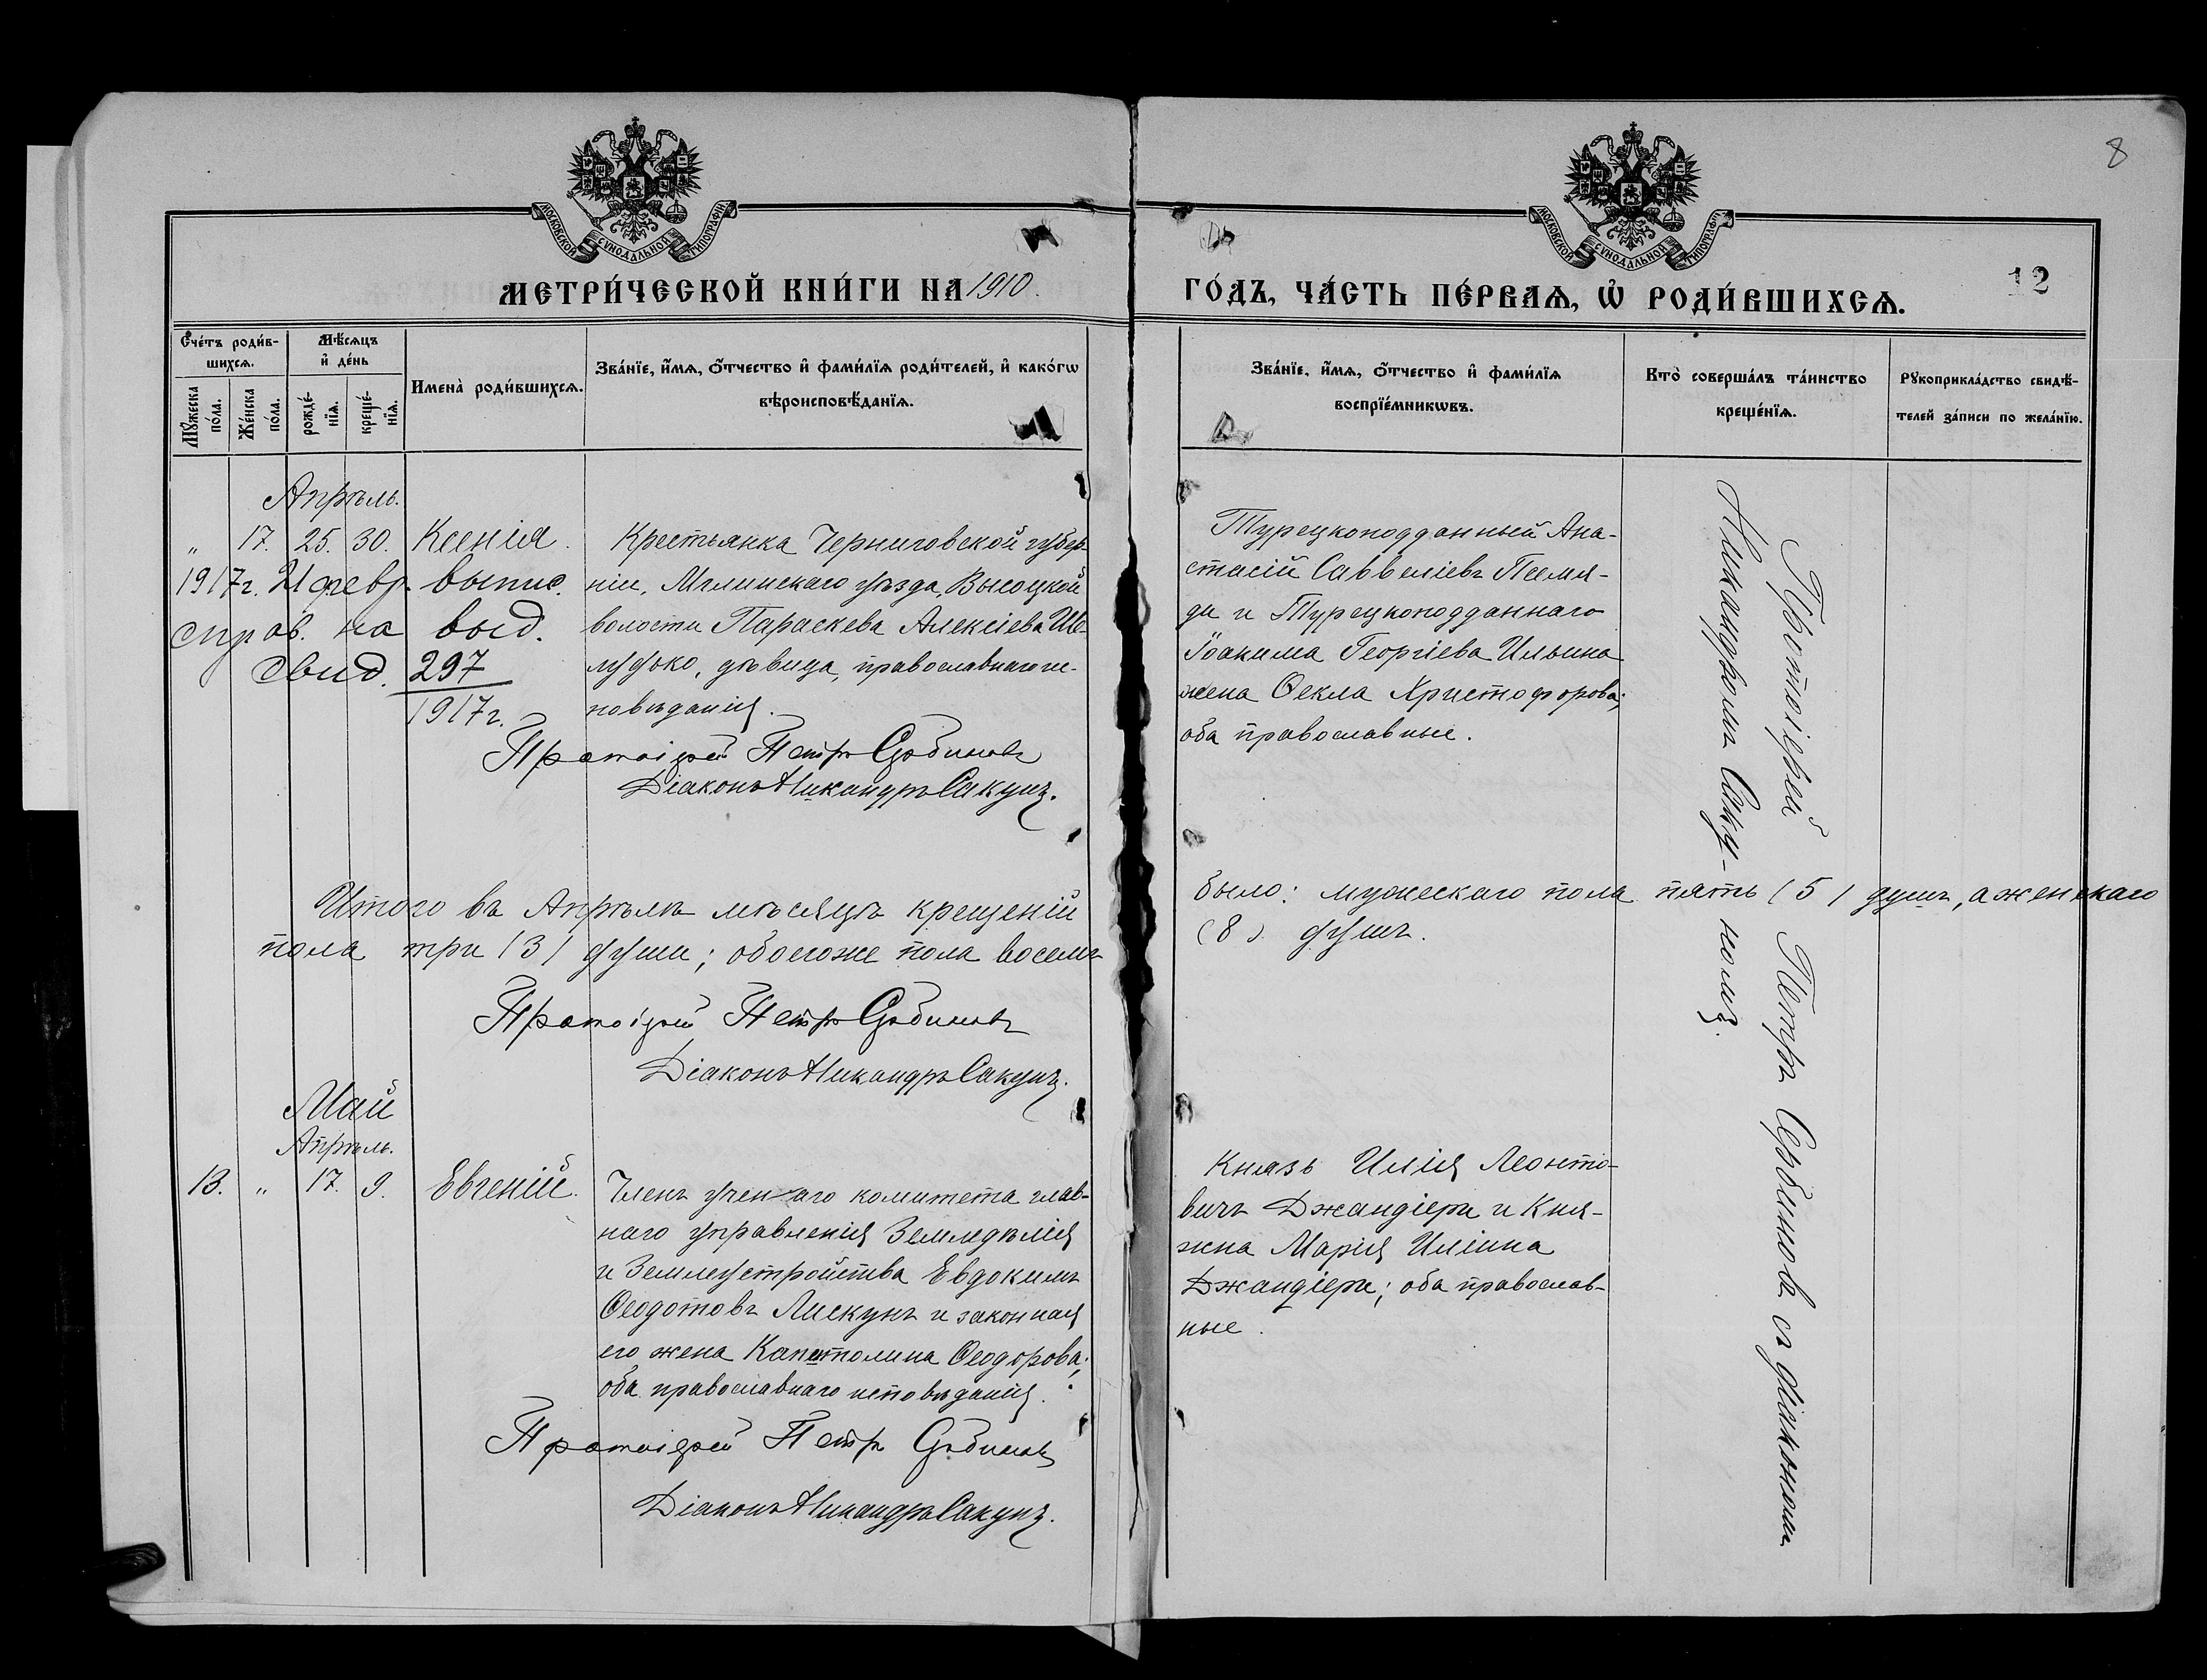 8
МОСКОВСКОЙ СѴНОДАЛЬНОЙ ТИПОГРАФІИ
МОСКОВСКОЙ СѴНОДАЛЬНОЙ ТИПОГРАФІИ
МЕТРИ́ЧЕСКОЙ КНИ́ГИ НА 1910.
ГО́ДЪ, ЧА́СТЬ ПЕ́РВАѦ, Ѡ҆ РОДИ́ВШИХСѦ.
12
Счéтъ роди́в-
шихсѧ.
Мꙋ́жеска по́ла.
Же́нска по́ла.
Мѣ́сѧцъ
и҆ де́нь
рожде́-
нїѧ.
креще́-
нїѧ.
Имена̀ роди́вшихсѧ.
Зва́нїе, и҆́мѧ, ѻ҆́тчество и҆ фами́лїѧ роди́телей, и҆ како́гѡ
вѣроисповѣ́данїѧ.
Зва́нїе, и҆́мѧ, ѻ҆́тчество и҆ фами́лїѧ
воспрїе́мникѡвъ.
Кто̀ соверша́лъ та́инство
креще́нїѧ.
Рꙋкоприкла́дство свидѣ́-
телей за́писи по жела́нїю.
Апрѣль.
" 17. 25. 30. Ксенія.
1917г. 21 февр. выпис.
справ. на выд.
свид. 297
1917г.
Крестьянка Черниговской губер-
ніи, Мглинскаго уѣзда, Высоцкой
волости Параскева Алексіева Ше-
лудько, дѣвица, православнаго ис-
повѣданія.
Протоіерей Петръ Сербиновъ
Діаконъ Никандръ Сакунъ.
Турецкоподданный Ана-
стасій Саввеліевъ Псемя-
ди и Турецкоподданнаго
Іоакима Георгіева Ильина
жена Ѳекла Христофорова;
оба православные.
Протоіерей Петръ Сербиновъ съ діакономъ
Никандромъ Саку-номъ.
Итого въ Апрѣлѣ мѣсяцѣ крещеній
было: мужескаго пола пять (5) душъ, а женскаго
пола три (3) души; обоегоже пола восемь
(8) душъ.
Протоіерей Петръ Сербиновъ
Діаконъ Никандръ Сакунъ.
Май
Апрѣль.
13. " 17. 9. Евгеній.
Членъ ученаго комитета глав-
наго управленія Земледѣлія
и Землеустройства Евдокимъ
Ѳеодотовъ Лискунъ и законная
его жена Капитолина Ѳеодорова;
оба православнаго исповѣданія.
Протоіерей Петръ Сербиновъ
Діаконъ Никандръ Сакунъ.
Князь Илія Леонто-
вичъ Джандіери и Кня-
жна Марія Иліина
Джандіери; оба православ-
ные.